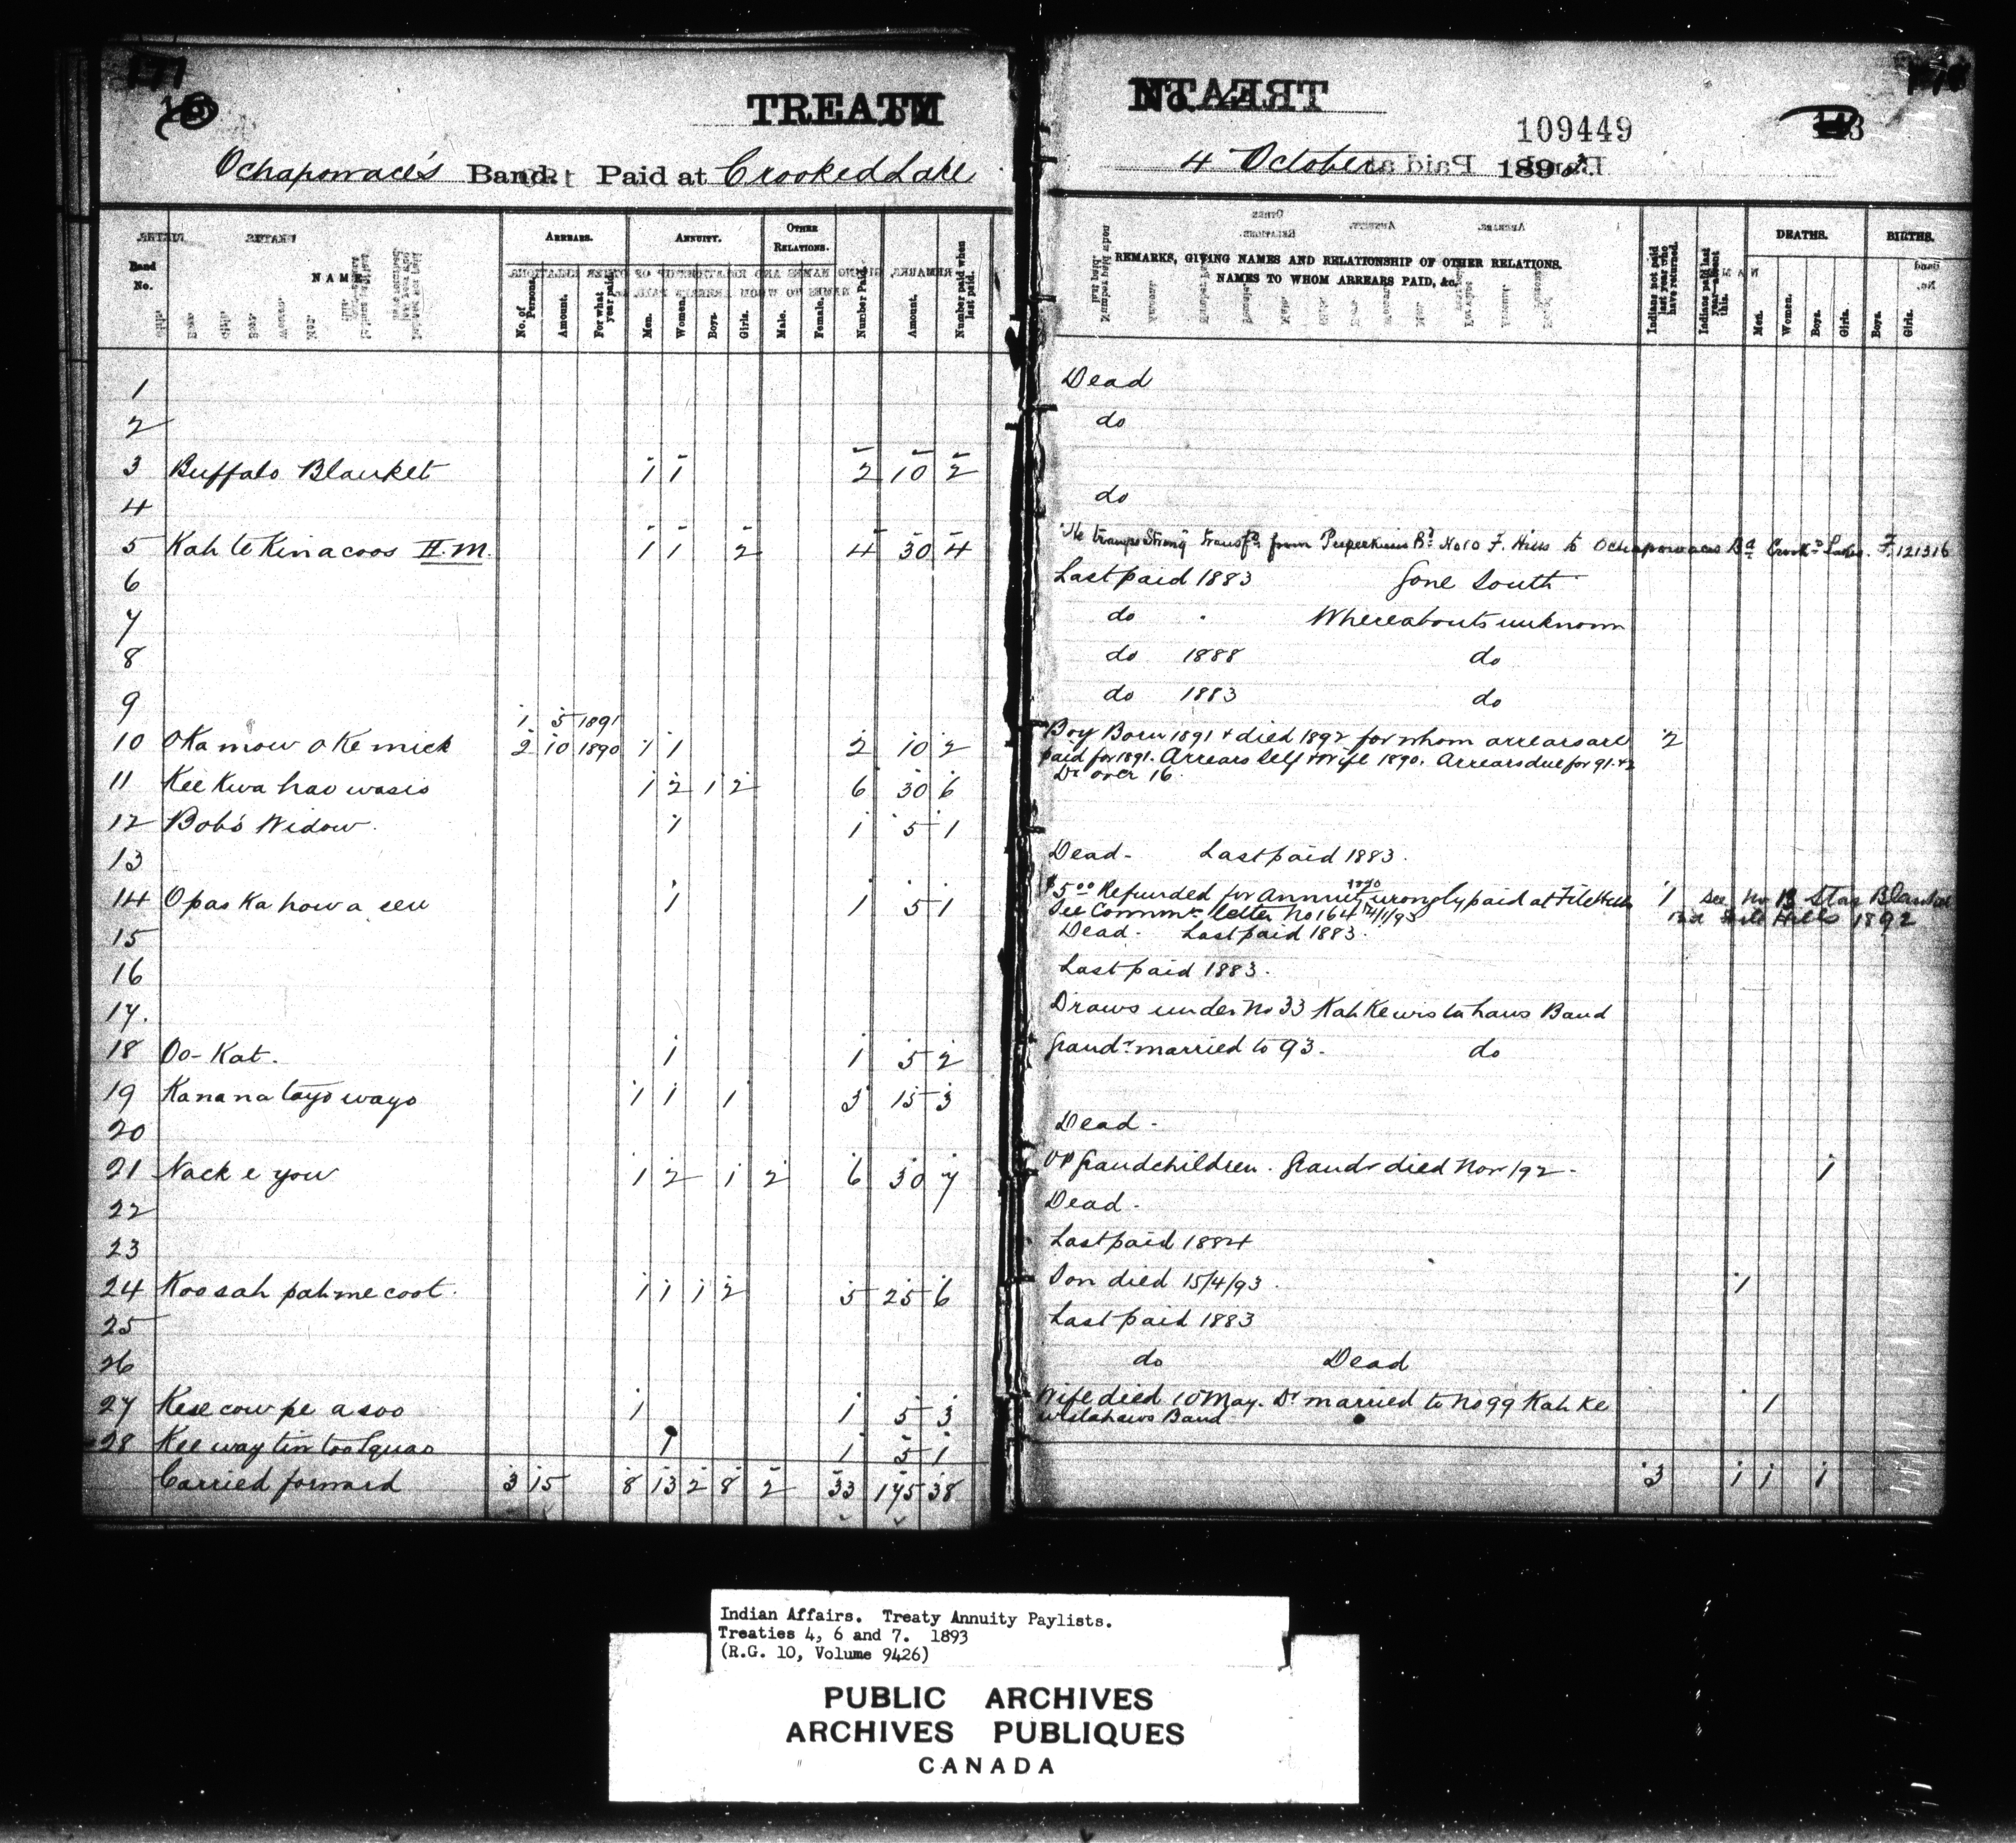 177
TREATY No. 4
109449
143
Ochapowace's Band. Paid at Crooked Lake 4 October 1893
Band No.
NAME.
ARREARS.
No. of Persons.
Amount.
For what year paid.
ANNUITY.
Men.
Women.
Boys.
Girls.
OTHER RELATIONS.
Male.
Female.
Number Paid.
Amount.
Number paid when last paid.
REMARKS, GIVING NAMES AND RELATIONSHIP OF OTHER RELATIONS. NAMES TO WHOM ARREARS PAID, &c.
Indians not paid last year who have returned.
Indians paid last year—absent this.
DEATHS.
Men.
Women.
Boys.
Girls.
BIRTHS.
Boys.
Girls.
1 Dead
2 do
3 Buffalo Blanket 1 1 2 10 2
4 do
5 Kah te Kinacoos H.M. 1 1 2 4 30 4 He tramps Strong transfd. from Peepeekisis Bd. No 10 F. Hills to Ochapowaces Bd Crookd Lakes. F. 121316
6 Last paid 1883 Gone South
7 do Whereabouts unknown
8 do 1888 do
9 do 1883 do
1 5 1891
10 Oka mow oke mick 2 10 1890 1 1 2 10 2 Boy Born 1891 & died 1892 for whom arrears are 2
paid for 1891. Arrears Self & Wife 1890. Arrears due for 91. 92
11 Kee Kwa hao wasis 1 2 1 2 6 30 6 Dr over 16.
12 Bob's Widow. 1 1 5 1
13 Dead - Last paid 1883.
14 Opas Ka how a sew 1 1 5 1 $5.00 Refunded for Annuity wrongly paid at File Hills 1 See No 13 Star Blanket
See Commr. letter No 164 Files Hills 1892
15 Dead - Last paid 1883.
16 Last paid 1883.
17. Draws under No 33 Kah Ke wis ta haws Band
18 Oo-Kat. 1 1 5 2 Grandr married to 93. do
19 Kanana tayo wayo 1 1 1 3 15 3
20 Dead -
21 Nack e you 1 2 1 2 6 30 7 Grandchildren. Grandr died Nov/92 - 1
22 Dead -
23 Last paid 1884
24 Koosah pah me coot. 1 1 1 2 5 25 6 Son died 15/4/93. 1
25 Last paid 1883
26 do Dead
27 Kese cow pe a soo 1 1 5 3 Wife died 10 May. Dr married to No 99 Kah Ke 1
wistahaws Band
28 Kee way tin too Squao 1 1 5 1
Carried forward 3 15 8 13 2 8 2 33 175 38 3 1 1 1
Indian Affairs. Treaty Annuity Paylists.
Treaties 4, 6 and 7. 1893
(R.G. 10, Volume 9426)
PUBLIC ARCHIVES
ARCHIVES PUBLIQUES
CANADA